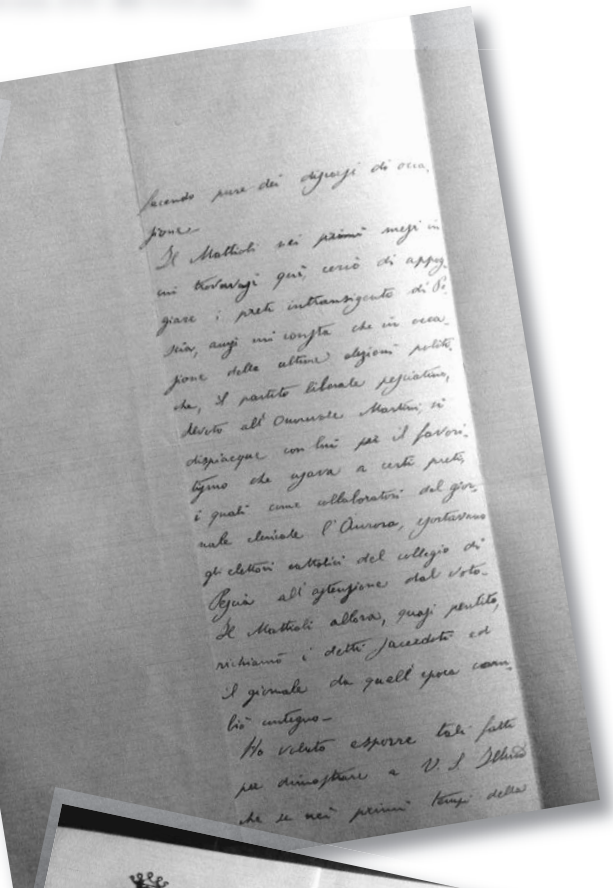 facendo pure dei discorsi di occa-
sione.
Il Mattioli nei primi mesi in
cui trovavasi qui, cercò di appog-
giare i preti intransigenti di Pe-
scia, anzi mi consta che in occa-
sione delle ultime elezioni politi-
che, il partito liberale pesciatino,
devoto all'Onorevole Martini, si
dispiacque con lui per il favori-
tismo che usava a certi preti,
i quali come collaboratori del gior-
nale clericale l'Aurora, esortavano
gli elettori cattolici del collegio di
Pescia all'astensione dal voto.
Il Mattioli allora, quasi pentito,
richiamò i detti sacerdoti ed
il giornale da quell'epoca cam-
biò contegno.
Ho voluto esporre tali fatti
per dimostrare a V. S. Ill
che se nei primi tempi della